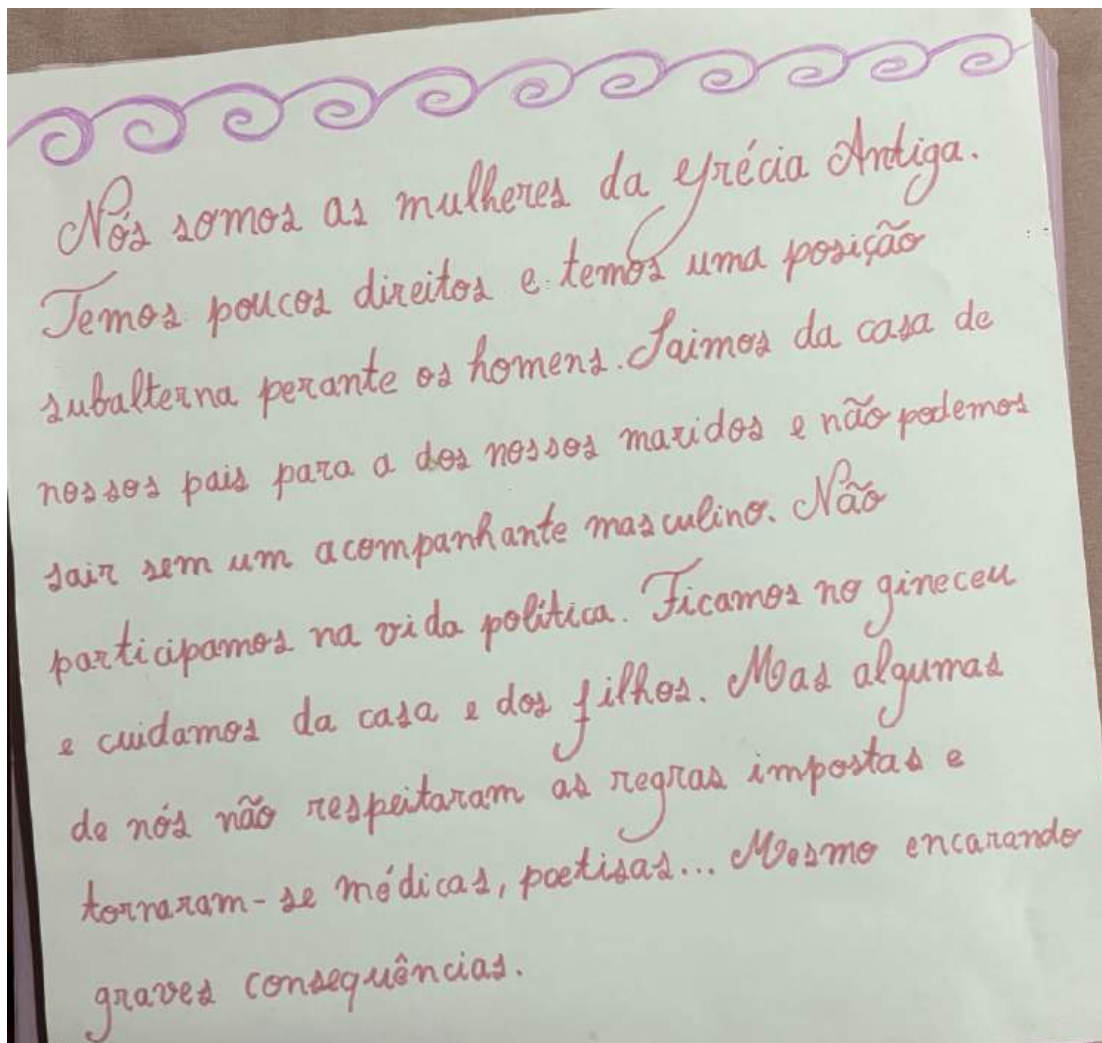 Nós somos as mulheres da Grécia Antiga.
Temos poucos direitos e temos uma posição
subalterna perante os homens. Saimos da casa de
nossos pais para a dos nossos maridos e não podemos
sair sem um acompanhante masculino. Não
participamos na vida política. Ficamos no gineceu
e cuidamos da casa e dos filhos. Mas algumas
de nós não respeitaram as regras impostas e
tornaram-se médicas, poetisas... Mesmo encarando
graves consequências.